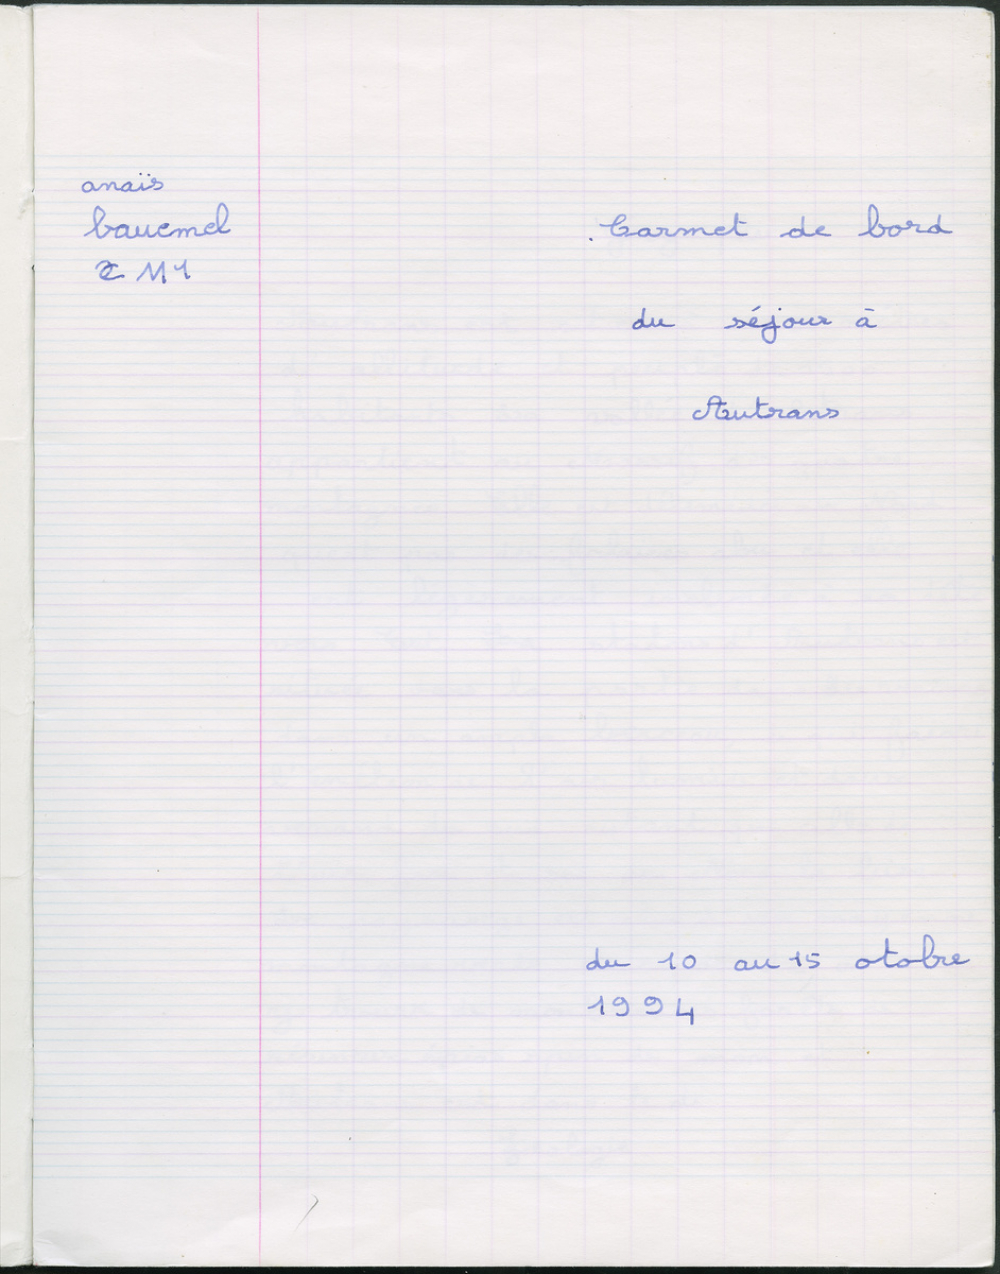 anaïs
bauemel
CM1
Carmet de bord
du séjour à
Autrans
du 10 au 15 otobre
1994